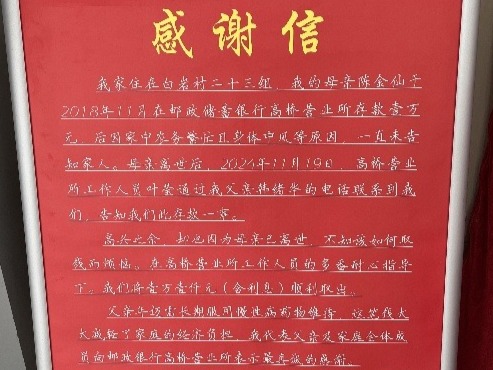 感谢信
我家住在白岩村二十三组，我的母亲陈金仙于
2018年11月在邮政储蓄银行高桥营业所存款壹万
元，后因家中农务繁忙且身体中风等原因，一直未告
知家人。母亲离世后，2024年11月19日，高桥营业
所工作人员叶莹通过我父亲韩绪华的电话联系到我
们，告知我们此存款一事。
高兴之余，却也因为母亲已离世，不知该如何取
钱而烦恼。在高桥营业所工作人员的多番耐心指导
下，我们将壹万壹仟元（含利息）顺利取出。
父亲年迈需长期服用慢性病药物维持，这笔钱大
大减轻了家庭的经济负担，我代表父亲及家庭全体成
员向邮政银行高桥营业所表示最真诚的感谢。